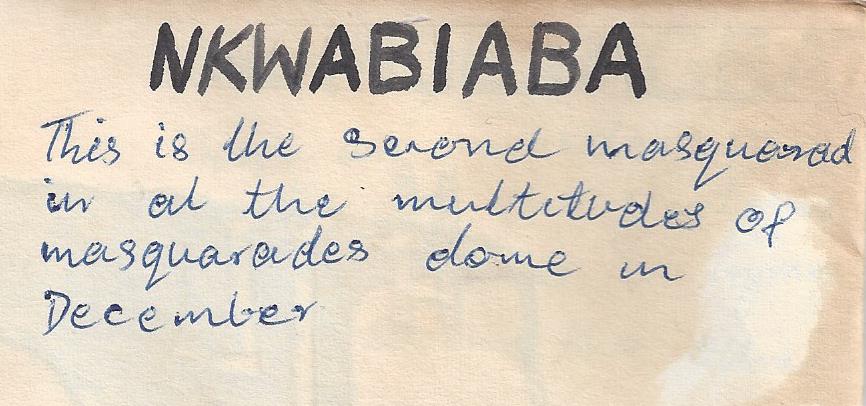 NKWABIABA
This is the second masquarad
in al the multitudes of
masquarades dome in
December